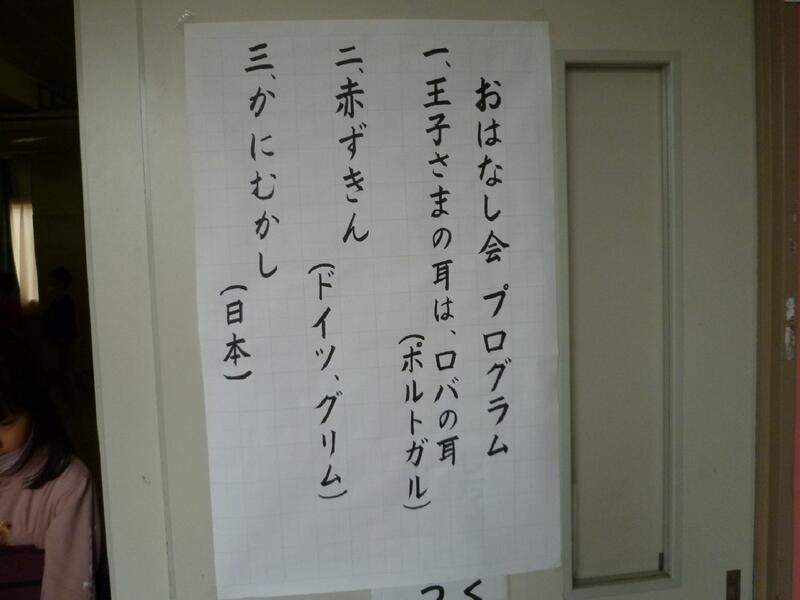 おはなし会 プログラム
一、王子さまの耳は、ロバの耳
(ポルトガル)
二、赤ずきん
(ドイツ、グリム)
三、かにむかし
(日本)